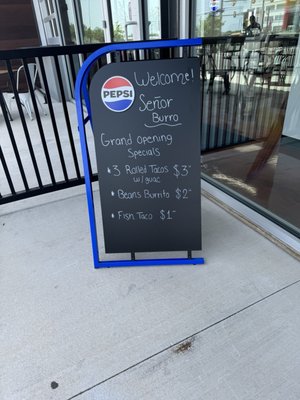 PEPSI
Welcome!
Señor
Burro
Grand opening
Specials
3 Rolled Tacos $3
w/guac
Beans Burrito $2
Fish Taco $1